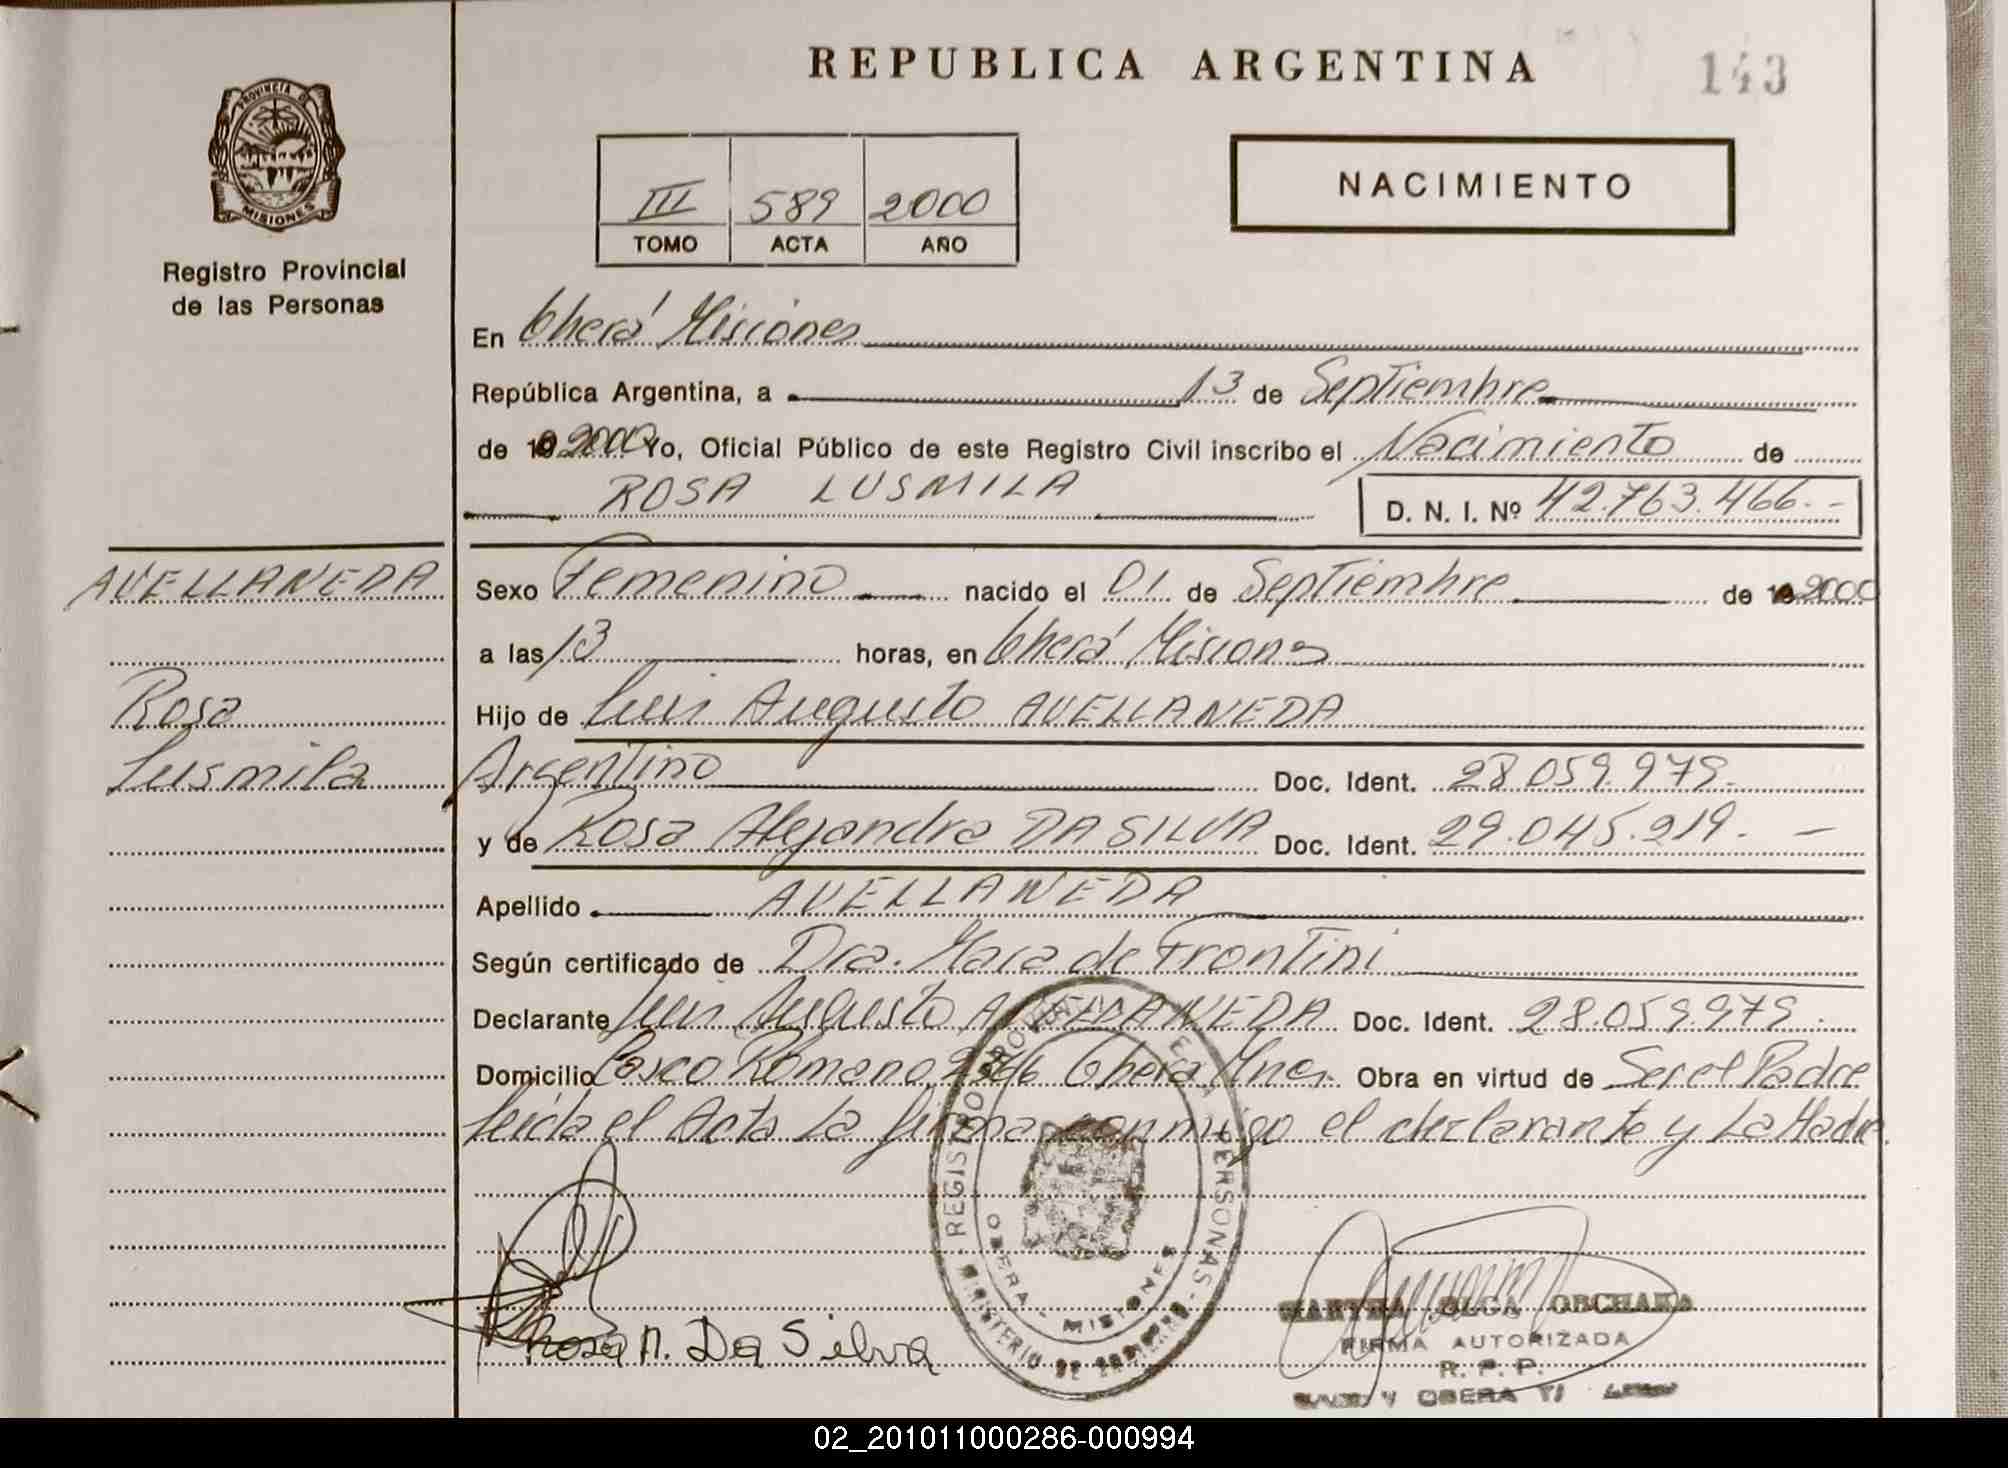 REPUBLICA ARGENTINA
143
PROVINCIA DE
MISIONES
Registro Provincial
de las Personas
III 589 2000
TOMO ACTA AÑO
NACIMIENTO
En Oberá Misiones
República Argentina, a 13 de Septiembre
de 19 2000 Yo, Oficial Público de este Registro Civil inscribo el Nacimiento de
ROSA LUSMILA
D. N. I. Nº 42.763.466.-
AVELLANEDA
Rosa
Lusmila
Sexo Femenino nacido el 01 de Septiembre de 19 2000
a las 13 horas, en Oberá Misiones
Hijo de Luis Augusto AVELLANEDA
Argentino Doc. Ident. 28.059.979.
y de Rosa Alejandra DA SILVA Doc. Ident. 29.045.219. -
Apellido AVELLANEDA
Según certificado de Dra. Mara de Frontini
Declarante Luis Augusto AVELLANEDA Doc. Ident. 28.059.979.
Domicilio Casco Romano Oberá Mnes. Obra en virtud de Ser el Padre
Leída el Acta La firman conmigo el declarante y La Madre.
REGISTRO PROVINCIAL DE LAS PERSONAS
OBERA - MISIONES
MINISTERIO DE GOBIERNO
Rosa A. Da Silva
MARTHA OLGA
FIRMA AUTORIZADA
R. P. P.
OBERA
02_201011000286-000994